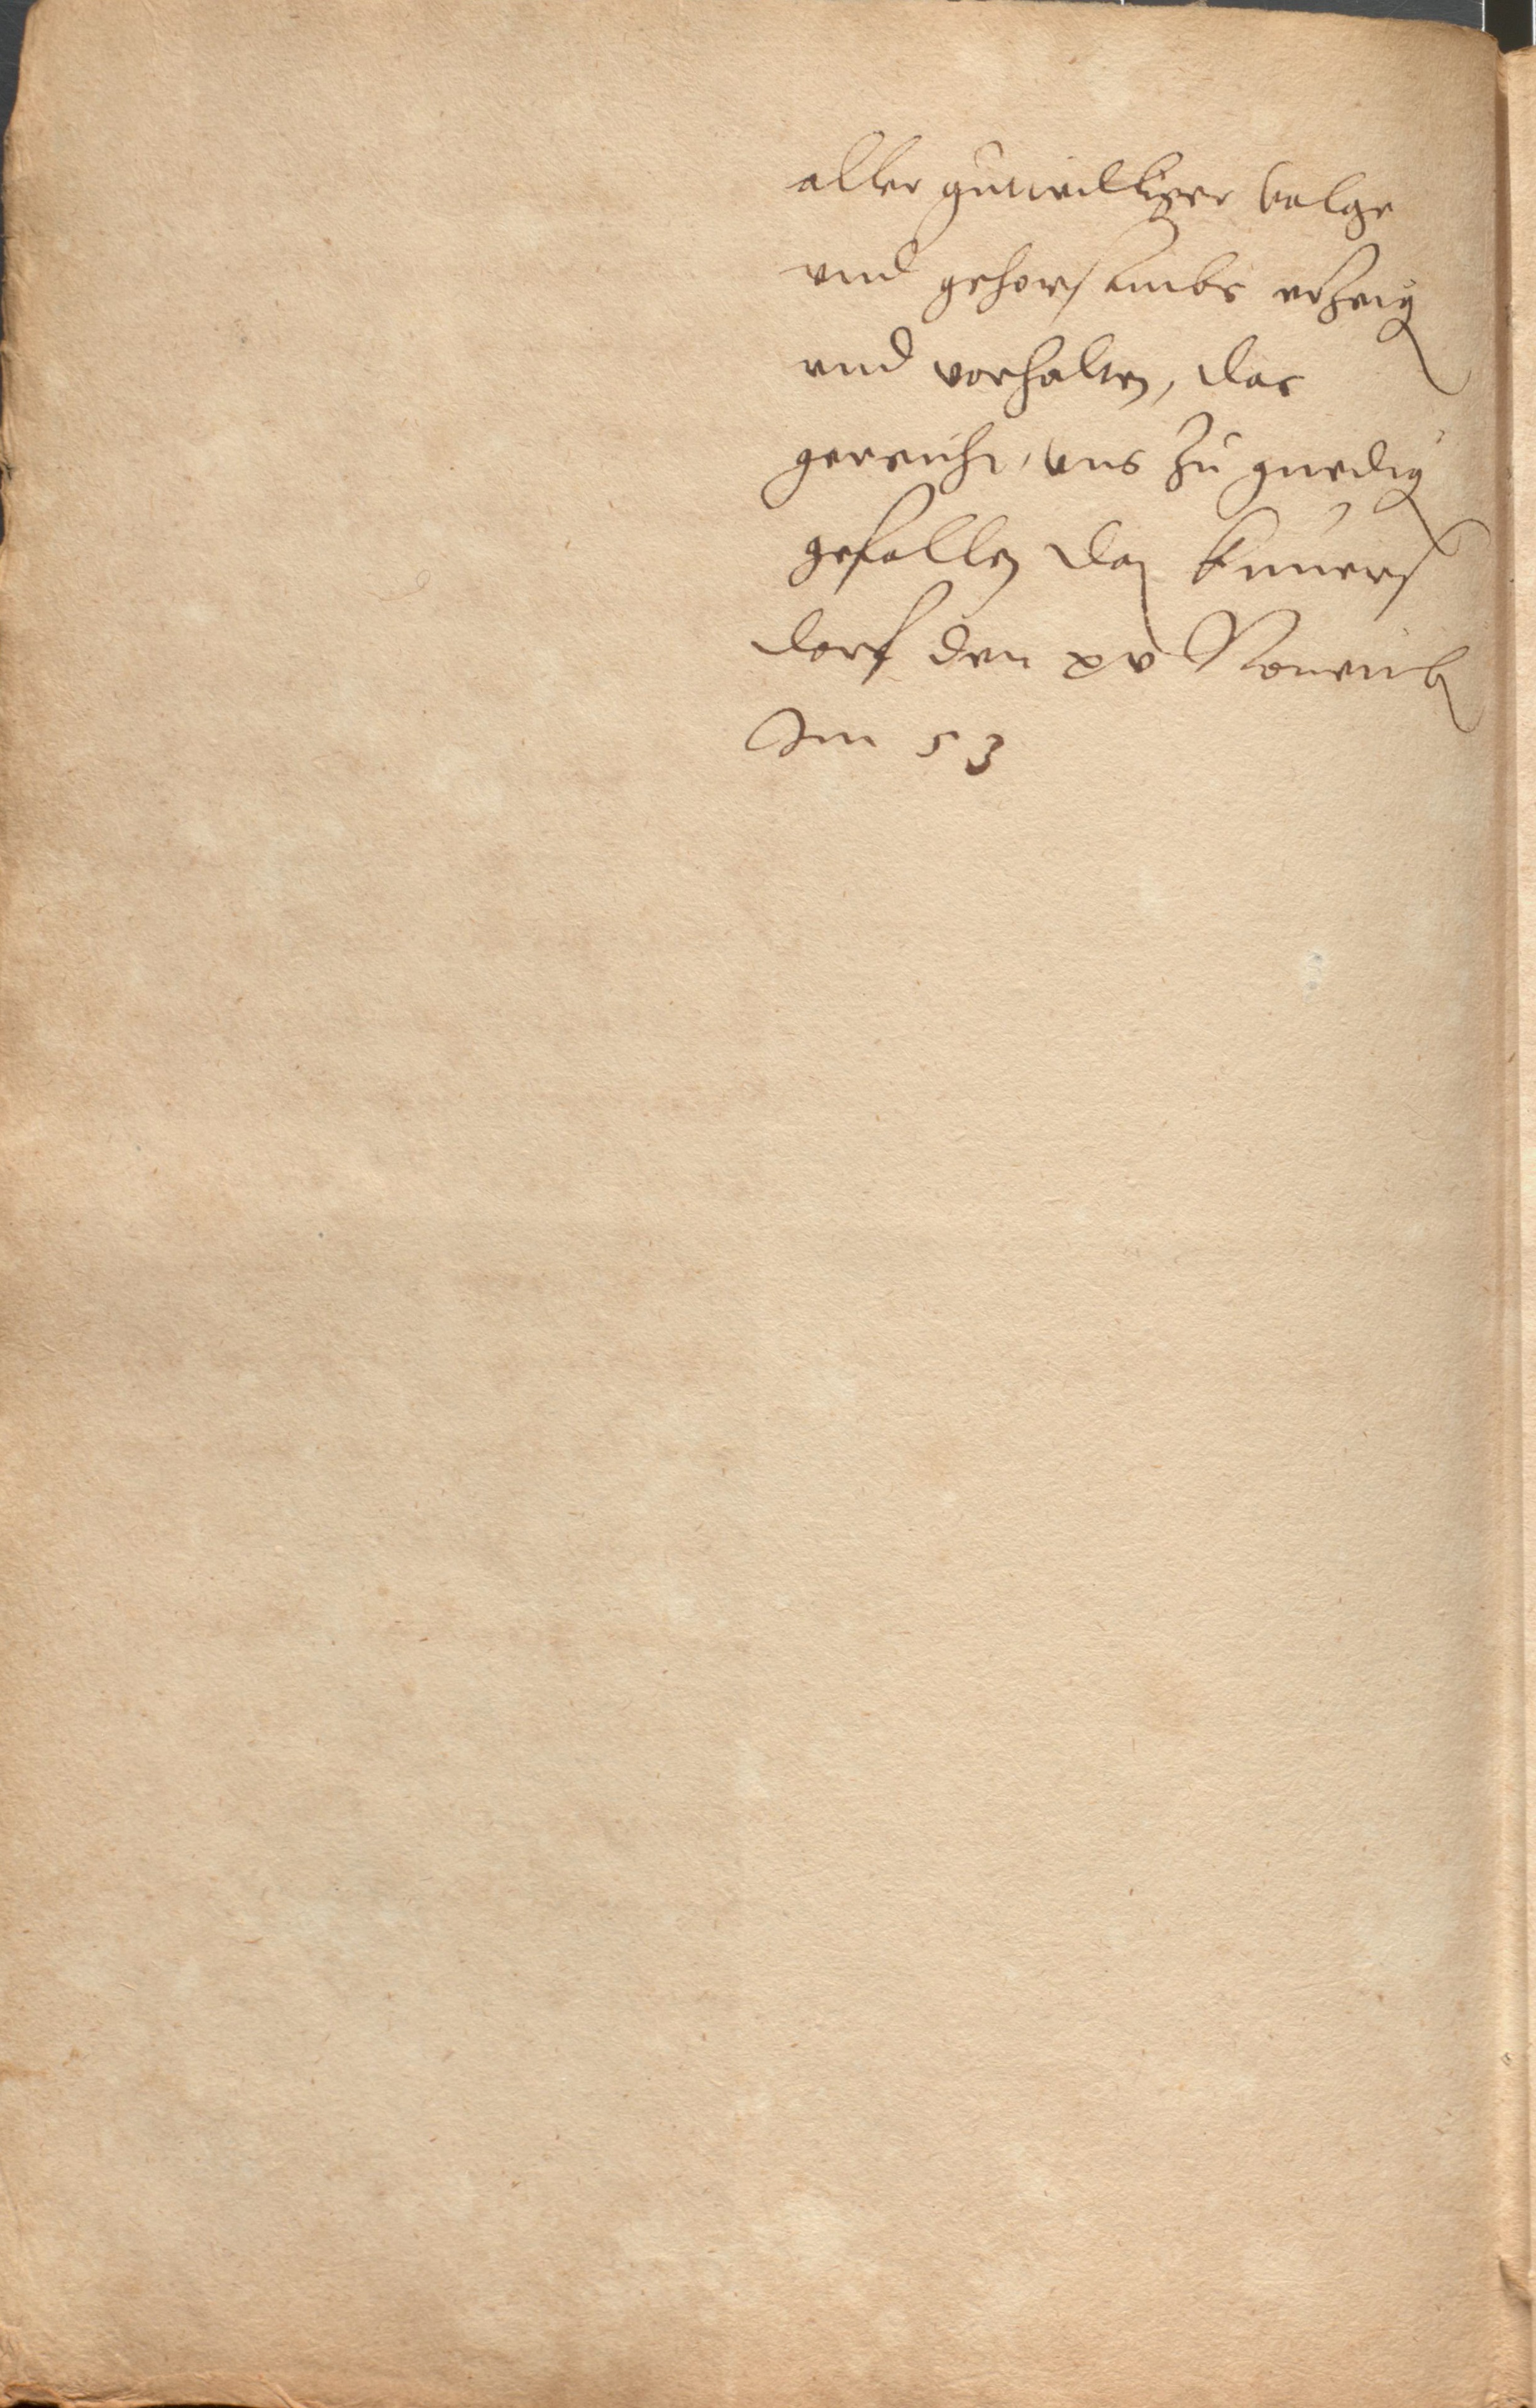 aller gutwilliger volge
vnd gehorsambs erzeig
vnd vorhalten, das
gereicht vns zu gnedig
gefallen dat
dorf den xv Nouemb
Im 53